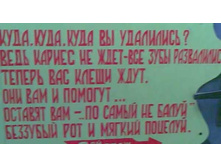 КУДА, КУДА, КУДА ВЫ УДАЛИЛИСЬ?
ВЕДЬ КАРИЕС НЕ ЖДЕТ-ВСЕ ЗУБЫ РАЗВАЛИЛИС
ТЕПЕРЬ ВАС КЛЕЩИ ЖДУТ.
ОНИ ВАМ И ПОМОГУТ...
ОСТАВЯТ ВАМ - „ПО САМЫЙ НЕ БАЛУЙ"
БЕЗЗУБЫЙ РОТ И МЯГКИЙ ПОЦЕЛУЙ.